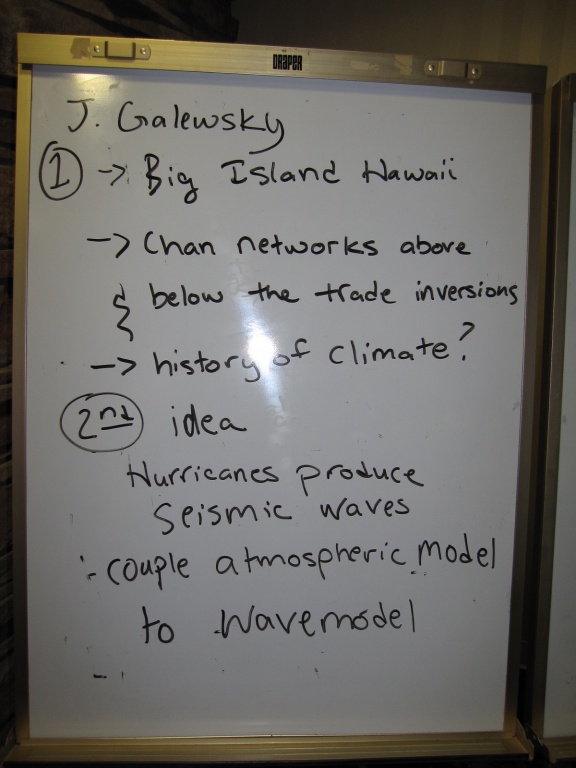 DRAPER
J. Galewsky
1 -> Big Island Hawaii
-> Chan networks above
below the trade inversions
-> history of climate?
2nd idea
Hurricanes produce
seismic waves
- couple atmospheric model
to wavemodel